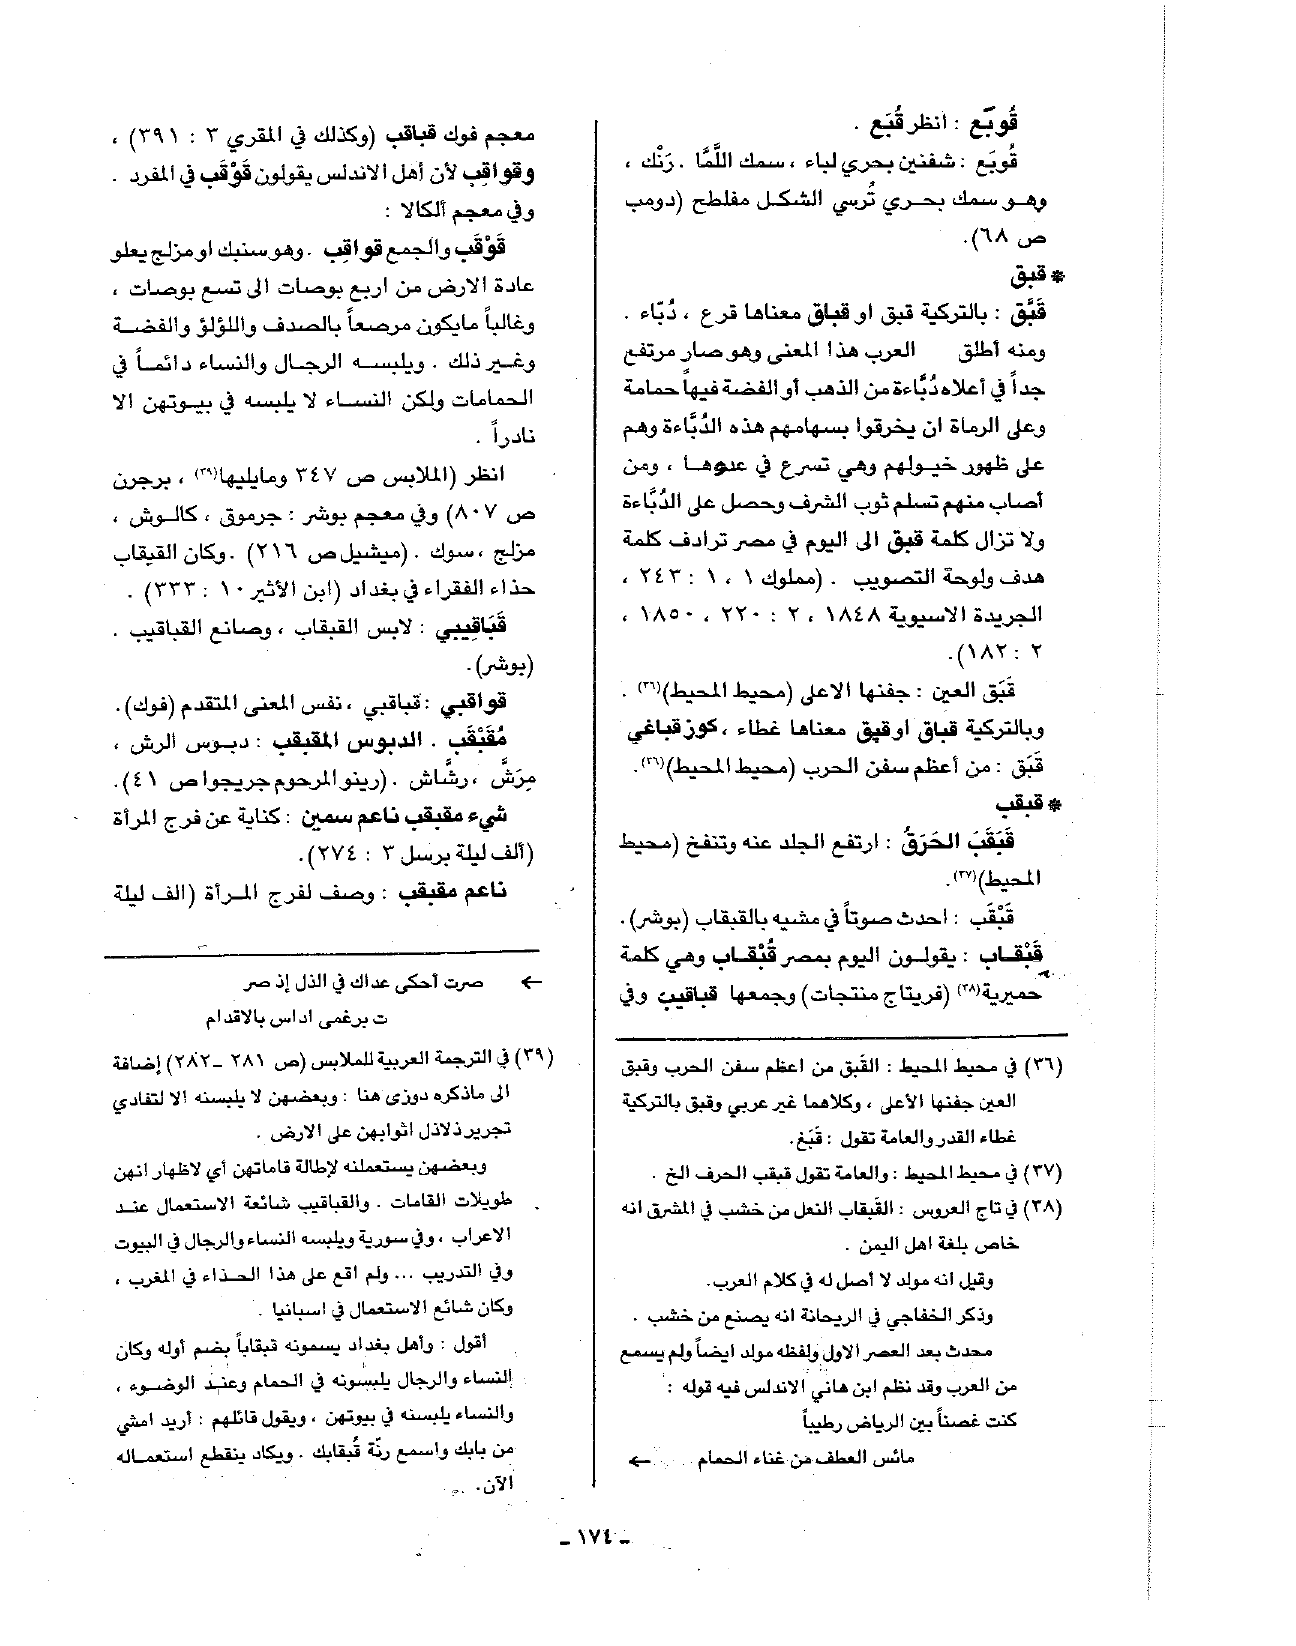 قُوبَع : انظر قُبَع .
قُوبَع : شفنين بحري لباء ، سمك اللَّمَّا . رَنْك ،
وهو سمك بحري تُرسي الشكل مفلطح (دومب
ص ٦٨).
* قبق
قَبَّق : بالتركية قبق او قباق معناها قرع ، دُبّاء .
ومنه أطلق العرب هذا المعنى وهو صار مرتفع
جداً في أعلاه دُبَّاءة من الذهب أو الفضة فيها حمامة
وعلى الرماة ان يخرقوا بسهامهم هذه الدُبَّاءة وهم
على ظهور خيولهم وهي تسرع في عدوها ، ومن
أصاب منهم تسلم ثوب الشرف وحصل على الدُبَّاءة
ولا تزال كلمة قبق الى اليوم في مصر ترادف كلمة
هدف ولوحة التصويب . (مملوك ١ ، ١ : ٢٤٣ ،
الجريدة الاسيوية ١٨٤٨ ، ٢ : ٢٢٠ ، ١٨٥٠ ،
٢ : ١٨٢).
قَبَق العين : جفنها الاعلى (محيط المحيط)(٣٦) .
وبالتركية قباق او قپق معناها غطاء ، كوز قباغي
قَبَق : من أعظم سفن الحرب (محيط المحيط)(٣٦).
* قبقب
قَبَقَبَ الحَرَقُ : ارتفع الجلد عنه وتنفخ (محيط
المحيط)(٣٧).
قَبْقَب : احدث صوتاً في مشيه بالقبقاب (بوشر).
قَبْقـاب : يقولـون اليوم بمصر قُبْقـاب وهي كلمة
حميرية(٣٨) (فريتاج منتجات) وجمعها قباقيب وفي
(٣٦) في محيط المحيط : القَبق من اعظم سفن الحرب وقبق
العين جفنها الأعلى ، وكلاهما غير عربي وقبق بالتركية
غطاء القدر والعامة تقول : قَبَغ.
(٣٧) في محيط المحيط : والعامة تقول قبقب الحرف الخ .
(٣٨) في تاج العروس : القَبقاب النعل من خشب في المشرق انه
خاص بلغة اهل اليمن .
وقيل انه مولد لا أصل له في كلام العرب.
وذكر الخفاجي في الريحانة انه يصنع من خشب .
محدث بعد العصر الاول ولفظه مولد ايضاً ولم يسمع
من العرب وقد نظم ابن هاني الاندلس فيه قوله :
كنت غصناً بين الرياض رطيباً
مائس العطف من غناء الحمام ←
معجم فوك قباقب (وكذلك في المقري ٣ : ٣٩١) ،
وقواقِب لأن أهل الاندلس يقولون قَوْقَب في المفرد .
وفي معجم ألكالا :
قَوْقَب والجمع قواقِب . وهو سنبك او مزلج يعلو
عادة الارض من اربع بوصات الى تسع بوصات ،
وغالباً مايكون مرصعاً بالصدف واللؤلؤ والفضة
وغير ذلك . ويلبسه الرجال والنساء دائماً في
الحمامات ولكن النساء لا يلبسه في بيوتهن الا
نادراً .
انظر (الملابس ص ٣٤٧ ومايليها(٣٩) ، برجرن
ص ٨٠٧) وفي معجم بوشر : جرموق ، كالوش ،
مزلج ، سوك . (ميشيل ص ٢١٦) . وكان القبقاب
حذاء الفقراء في بغداد (ابن الأثير ١٠ : ٣٣٣) .
قَبَاقيبي : لابس القبقاب ، وصانع القباقيب .
(بوشر).
قواقبي : قباقبي ، نفس المعنى المتقدم (فوك).
مُقَبْقَب . الدبوس المقبقب : دبوس الرش ،
مِرَشّ ، رشّاش . (رينو المرحوم جريجوا ص ٤١).
شيء مقبقب ناعم سمين : كناية عن فرج المرأة
(ألف ليلة برسل ٣ : ٢٧٤).
ناعم مقبقب : وصف لفرج المرأة (الف ليلة
← صرت أحكي عداك في الذل إذ صر
ت برغمى اداس بالاقدام
(٣٩) في الترجمة العربية للملابس (ص ٢٨١ - ٢٨٢) إضافة
الى ماذكره دوزي هنا : وبعضهن لا يلبسنه الا لتفادي
تجرير ذلاذل اثوابهن على الارض .
وبعضهن يستعملنه لإطالة قاماتهن أي لاظهار انهن
طويلات القامات . والقباقيب شائعة الاستعمال عند
الاعراب ، وفي سورية ويلبسه النساء والرجال في البيوت
وفي التدريب ... ولم اقع على هذا الحذاء في المغرب ،
وكان شائع الاستعمال في اسبانيا .
أقول : وأهل بغداد يسمونه قبقاباً بضم أوله وكان
النساء والرجال يلبسونه في الحمام وعند الوضوء ،
والنساء يلبسنه في بيوتهن ، ويقول قائلهم : أريد امشي
من بابك واسمع رنّة قُبقابك . ويكاد ينقطع استعماله
الآن.
- ١٧٤ -